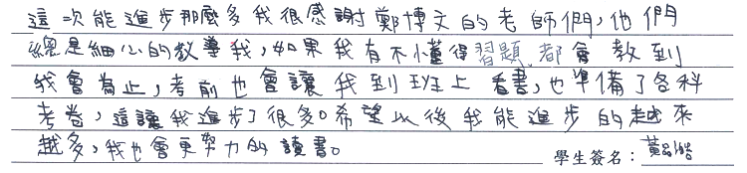 這次能進步那麼多我很感謝鄭博文的老師們,他們
總是細心的教導我,如果我有不懂得習題,都會教到
我會為止,考前也會讓我到班上看書,也準備了各科
考卷,這讓我進步了很多。希望以後我能進步的越來
越多,我也會更努力的讀書。
學生簽名:黃